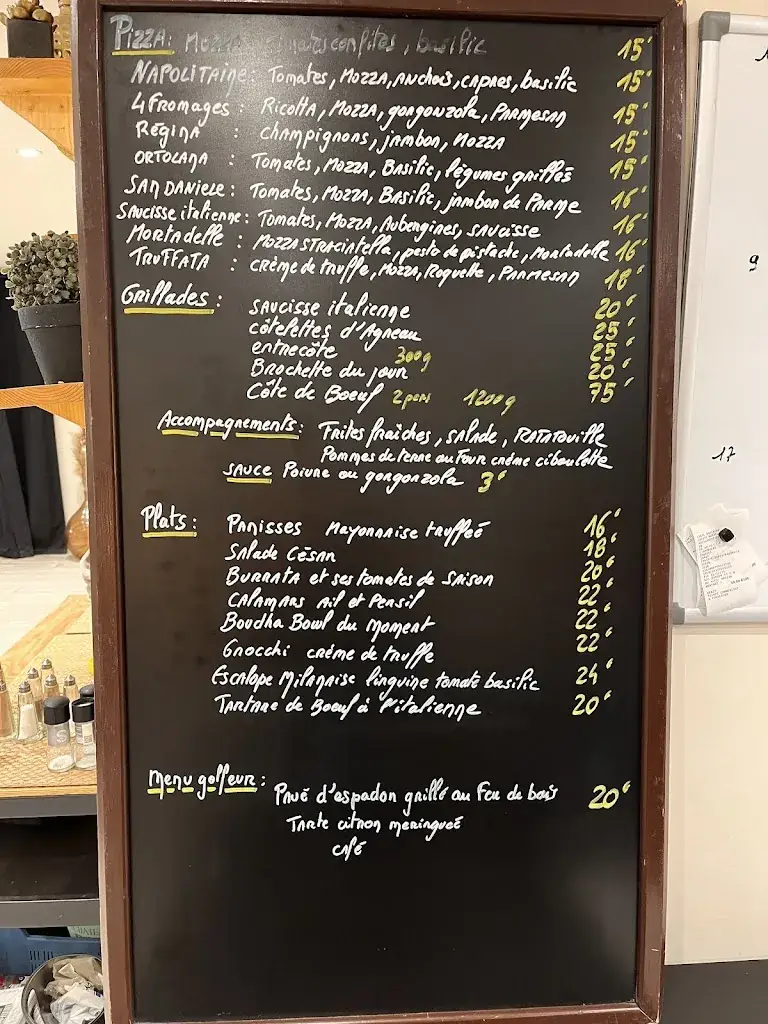 Pizza: Mozza, tomates confites, basilic 15€
Napolitaine: Tomates, Mozza, anchois, capres, basilic 15€
4 fromages: Ricotta, Mozza, gorgonzola, Parmesan 15€
Regina: champignons, jambon, Mozza 15€
Ortolana: Tomates, Mozza, Basilic, légumes grillés 15€
San Daniele: Tomates, Mozza, Basilic, jambon de Parme 16€
Saucisse italienne: Tomates, Mozza, Aubergines, saucisse 16€
Mortadelle: Mozza straciatella, pesto de pistache, Mortadelle 16€
Truffata: crème de truffe, Mozza, Roquette, Parmesan 18€
Grillades:
saucisse italienne 20€
côtelettes d'Agneau 25€
entrecôte 300g 25€
Brochette du jour 20€
Côte de Boeuf 2pers 1200g 75€
Accompagnements: Frites fraîches, salade, Ratatouille
Pommes de terre au Four crème ciboulette
sauce Poivre ou gorgonzola 3€
Plats: Panisses Mayonnaise truffée 16€
Salade César 18€
Burrata et ses tomates de saison 20€
Calamars Ail et Persil 22€
Boudha Bowl du Moment 22€
Gnocchi crème de truffe 22€
Escalope Milanaise linguine tomate basilic 24€
Tartare de Boeuf à l'italienne 20€
Menu golfeur:
Pavé d'espadon grillé au Feu de bois 20€
Tarte citron meringuée
café
9
17